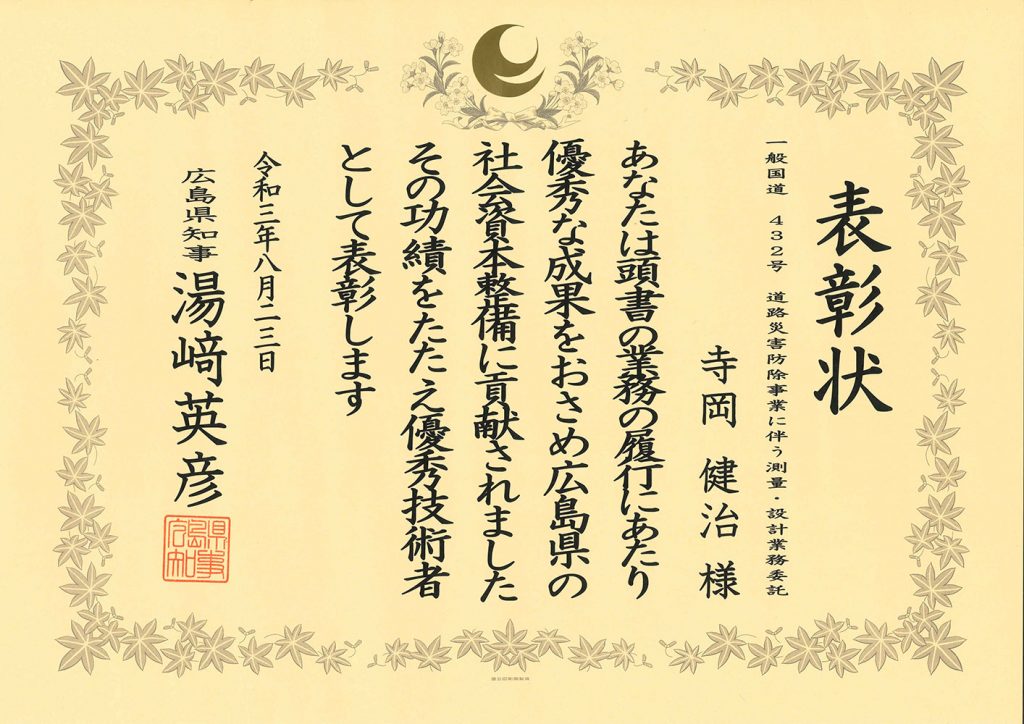 表彰状
一般国道 432号 道路災害防除事業に伴う測量・設計業務委託
寺岡 健治 様
あなたは頭書の業務の履行にあたり
優秀な成果をおさめ広島県の
社会資本整備に貢献されました
その功績をたたえ優秀技術者
として表彰します
令和三年八月二三日
広島県知事 湯﨑英彦